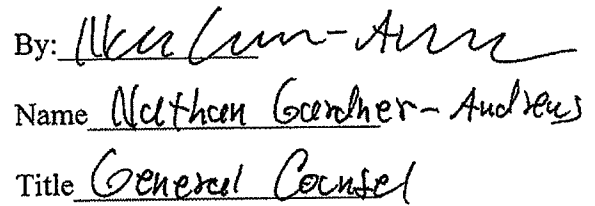 By:
Name Nathan Gardner-Andrews
Title General Counsel